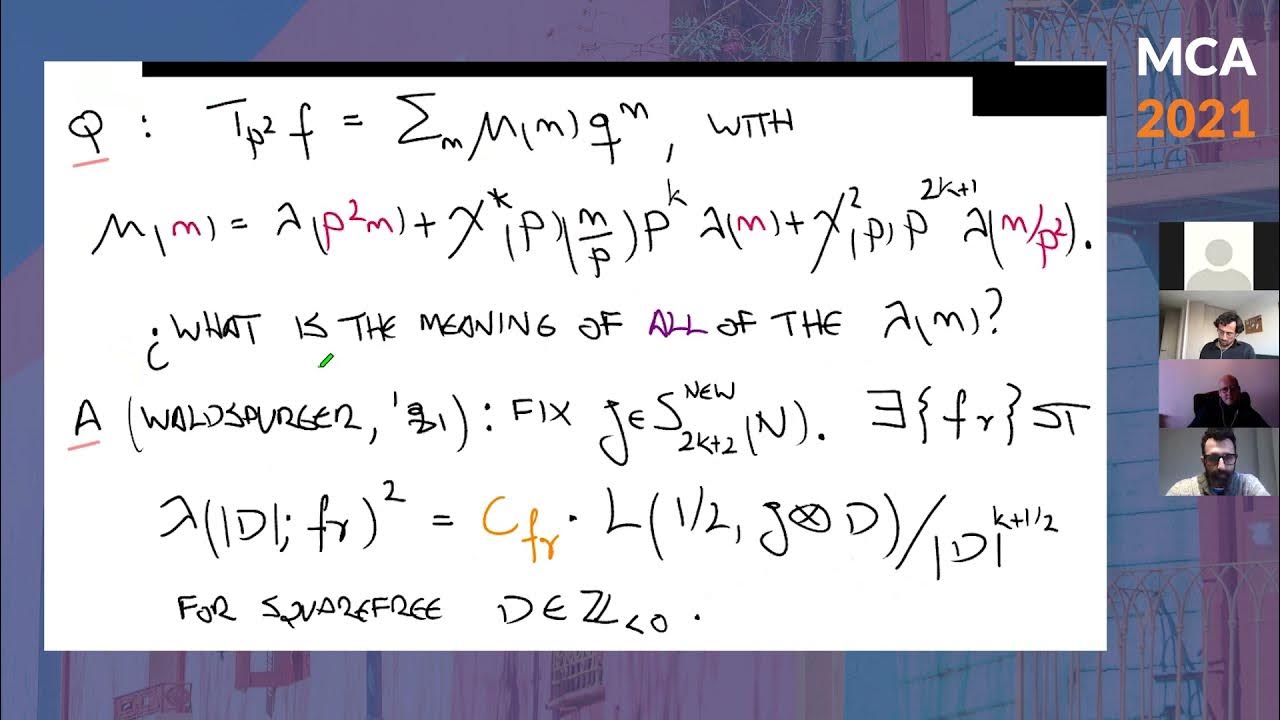 MCA
2021
Q : T_{p^2} f = Σ_m μ(m) q^m, WITH
μ(m) = λ(p^2 m) + χ*(p) (m/p) p^k λ(m) + χ^2(p) p^{2k+1} λ(m/p^2).
¿WHAT IS THE MEANING OF ALL OF THE λ(m)?
A (WALDSPURGER, '81): FIX g ∈ S^{NEW}_{2k+2}(N). ∃{f_r} ST
λ(|D|; f_r)^2 = C_{f_r} · L(1/2, g⊗D) / |D|^{k+1/2}
FOR SQUAREFREE D ∈ ℤ_{<0}.